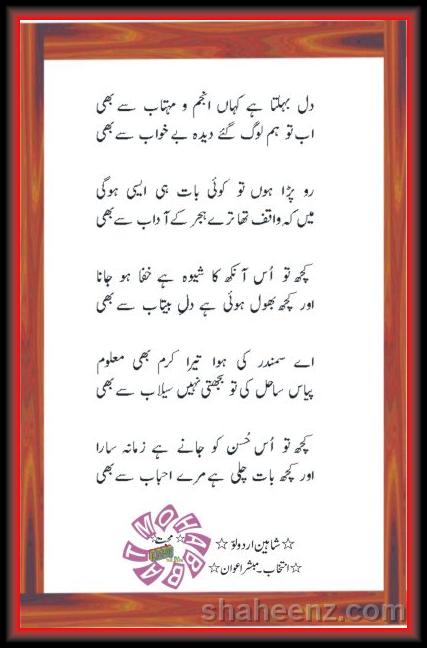 دل بہلتا ہے کہاں انجم و مہتاب سے بھی
اب تو ہم لوگ گئے دیدہ بے خواب سے بھی
رو پڑا ہوں تو کوئی بات ہی ایسی ہوگی
میں کہ واقف تھا ترے ہجر کے آداب سے بھی
کچھ تو اُس آنکھ کا شیوہ ہے خفا ہو جانا
اور کچھ بھول ہوئی ہے دلِ بیتاب سے بھی
اے سمندر کی ہوا تیرا کرم بھی معلوم
پیاس ساحل کی تو بجھتی نہیں سیلاب سے بھی
کچھ تو اُس حُسن کو جانے ہے زمانہ سارا
اور کچھ بات چلی ہے مرے احباب سے بھی
☆ شاہین اردو لو ☆ محبت ☆
☆ انتخاب۔ مبشر اعوان ☆
MOHABBAT
shaheenz.com